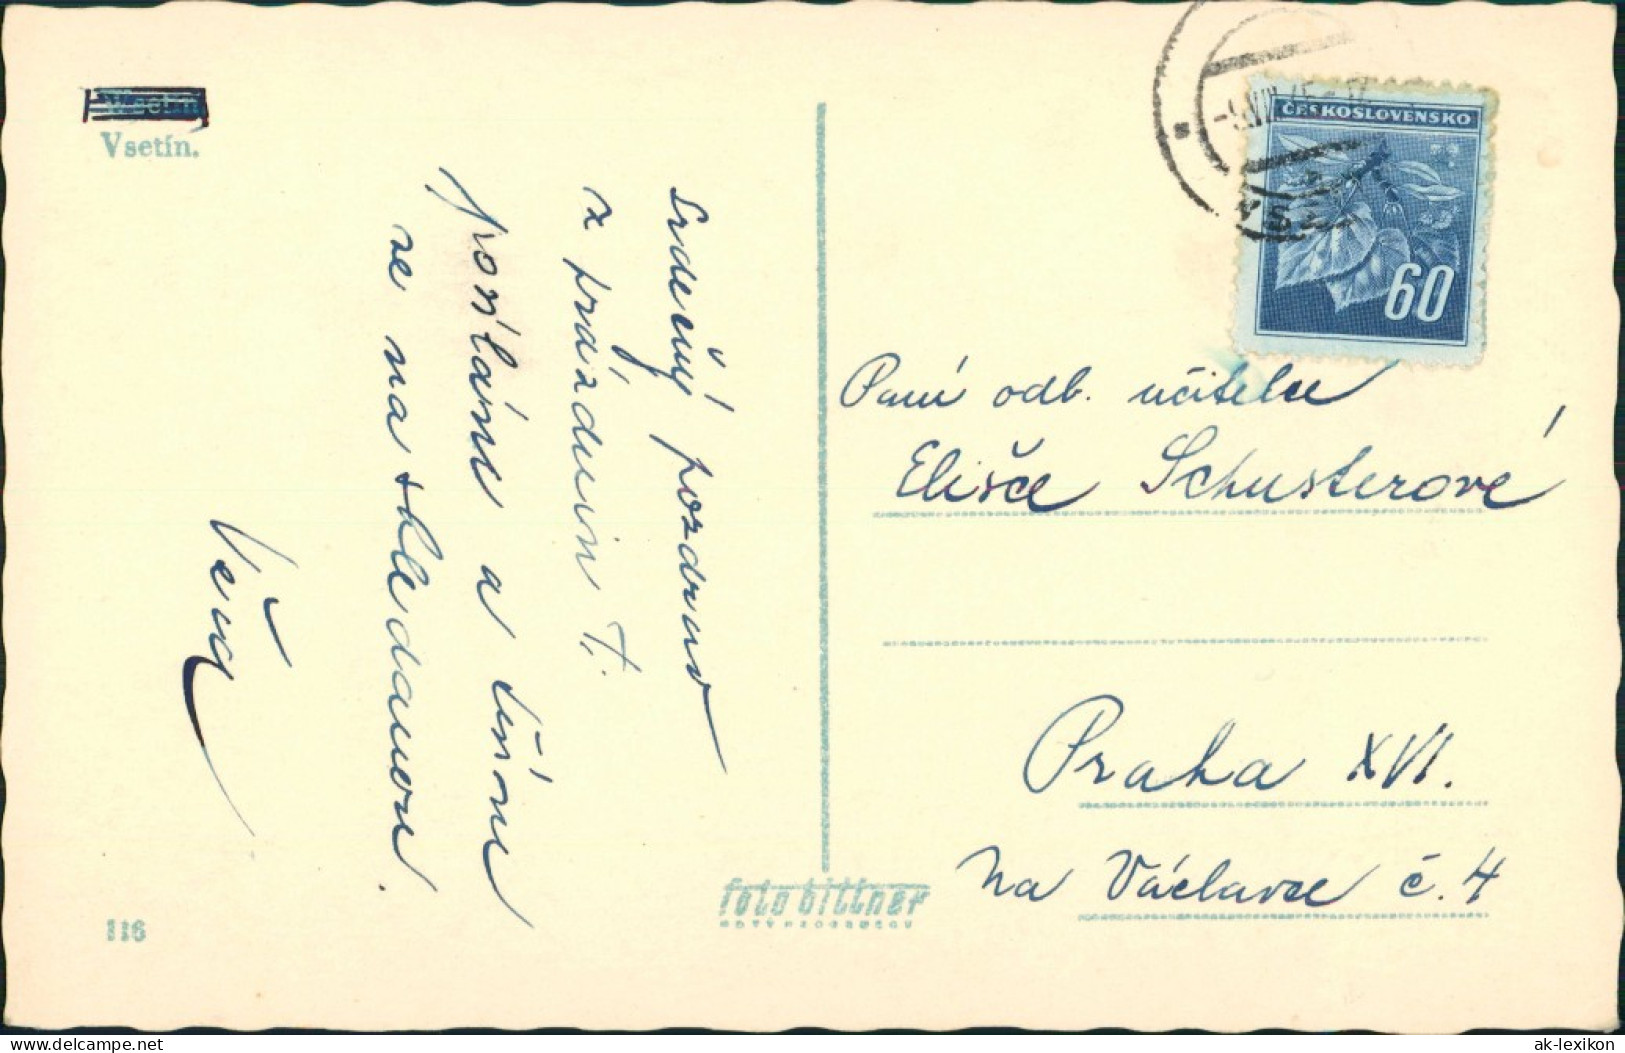 Wsetin
Vsetín.
Srdečný pozdrav
z prázdnin Ti
posílám a těším
se na shledanou.
Věra
116
foto bittner
ČESKOSLOVENSKO
60
Paní odb. učitelce
Elišce Schusterové
Praha XVI.
Na Václavce č. 4
www.delcampe.net
ak-lexikon